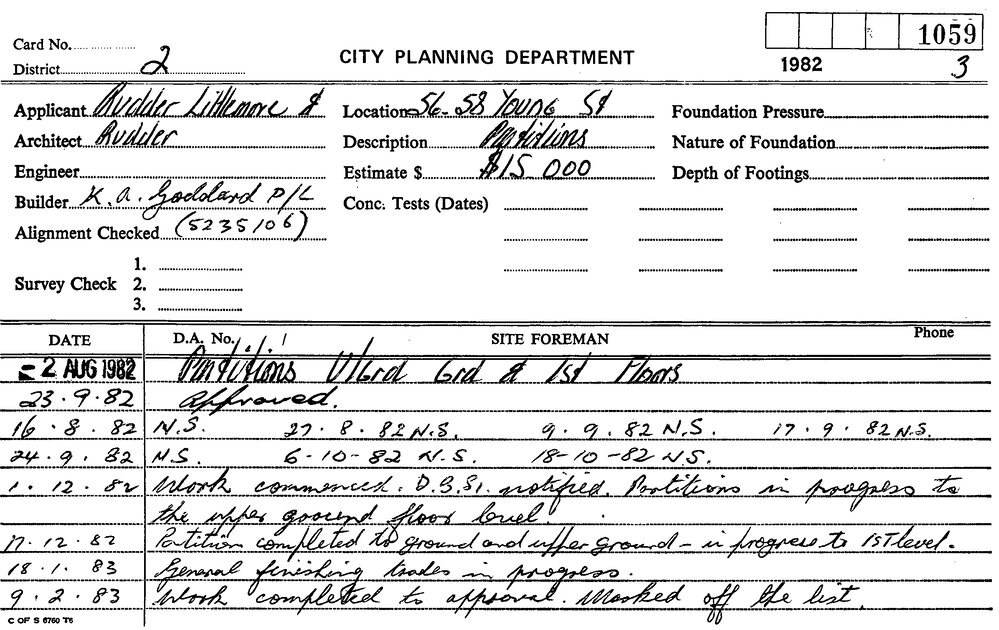 1059
Card No.
District 2
CITY PLANNING DEPARTMENT
1982 3
Applicant Rudder Littlemore & Location 56-58 Young St Foundation Pressure
Architect Rudder Description Partitions Nature of Foundation
Engineer Estimate $ $15 000 Depth of Footings
Builder K. A. Goddard P/L Conc. Tests (Dates)
Alignment Checked (5235106)
1.
Survey Check 2.
3.
DATE D.A. No. SITE FOREMAN Phone
2 AUG 1982 Partitions U/Grd Grd & 1st Floors
23.9.82 Approved.
16.8.82 N.S. 27.8.82 N.S. 9.9.82 N.S. 17.9.82 N.S.
24.9.82 N.S. 6-10-82 N.S. 18-10-82 N.S.
1.12.82 Work commenced. notified. Partitions in progress to
the upper ground floor level.
17.12.82 Partition completed to ground and upper ground - in progress to 1ST level.
18.1.83 General finishing trades in progress.
9.2.83 Work completed to approval. Marked off the list.
C OF S 6760 T6